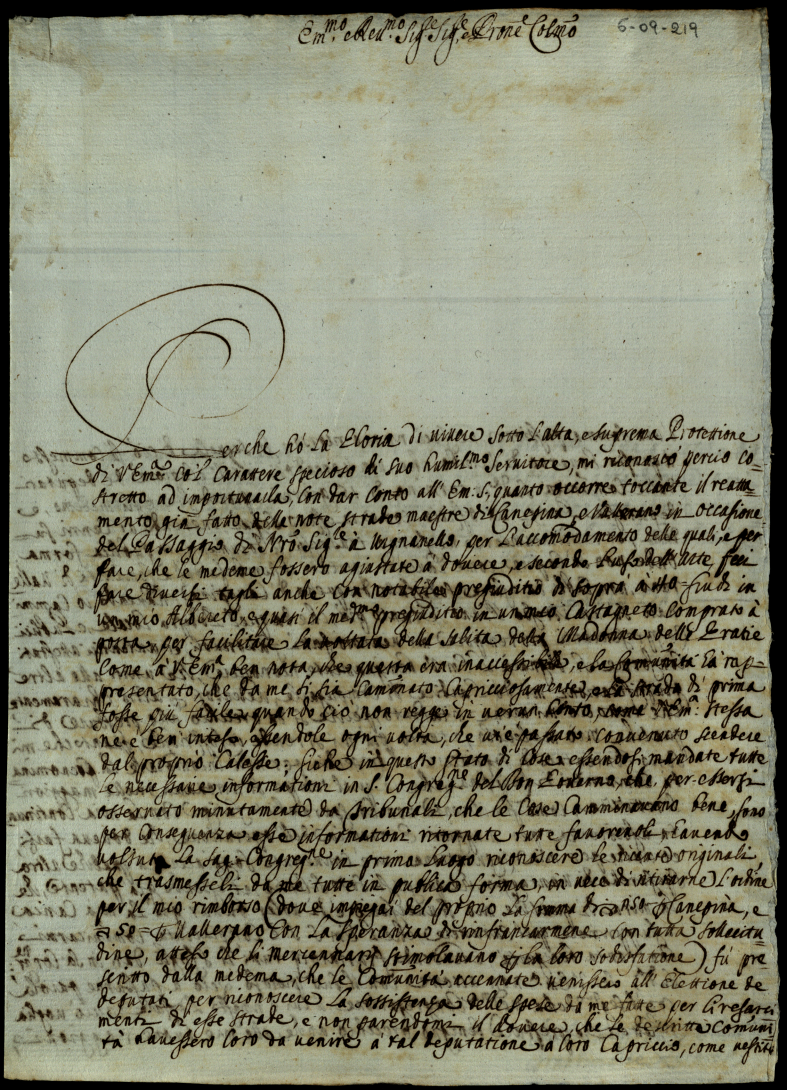 Em.mo e Reu.mo Sig.re Sig.re e Prone Colmo
6-09-219
Perche hò La Gloria di viuere sotto L'alta, e suprema Protettione
di V. Em.a Col Carattere specioso di suo humil.mo Seruitore, mi riconosco percio co=
stretto ad importunarla, Con dar conto all'Em: S: quanto occorre toccante il reatta=
mento già fatto delle note strade maestre di Canepina, e Vallerano in occasione
del Passaggio di Nro Sig.re à Vignanello, per L'accomodamento delle quali, e per
fare, che le medeme fossero agiustate à douere, e secondo L'uso dell'Arte, feci
fare diuersi tagli anche con notabile prejuditio di sopra à fiudi in
un mio Albereto, e quasi il med.mo prejuditio in un mio Castagneto Comprato à
posta per facilitare La uoltata della Salita della Madonna delle Gratie
Come à V. Em.a ben nota, che questa era inaccessibile, e la Comunità hà rap=
presentato, che da me si sia Caminato Capricciosamente, e La strada di prima
fosse più facile, quando ciò non regge in uerun Conto, come V. Em.a stessa
ne è ben intesa, essendole ogni uolta, che ui è passata conuenuto scendere
dal proprio Calesse; siche in questo stato di Cose essendosi mandate tutte
Le necessarie informationi in S. Congreg.ne del Bon Gouerno, che per essersi
osseruato minutamente da Tribunali, che le Cose Camminauano bene, sono
per Conseguenza esse informationi ritornate tutte fauoreuoli, hauendo
uoluto La Sag. Congreg.ne in primo Luogo riconoscere le riceute originali,
che trasmesseli da me tutte in publica forma, in uece di ritirarne L'ordine
per il mio rimborso (doue impiegai del proprio La somma di 50 p Canepina, e
50 = p Uallerano Con La speranza di rinfrancarmene con tutta sollecitu
dine, atteso che li mercennarij stimolauano p La loro sodisfatione) fu pre=
scritto dalla medema, che le Comunità accennate uenissero all'Elettione de
deputati per riconoscere La sossistenza delle spese da me fatte per Li resarci
menti di esse strade, e non parendomi il douere, che Le descritte Comuni
tà hauessero loro da uenire à tal deputatione à loro Capriccio, come uestite